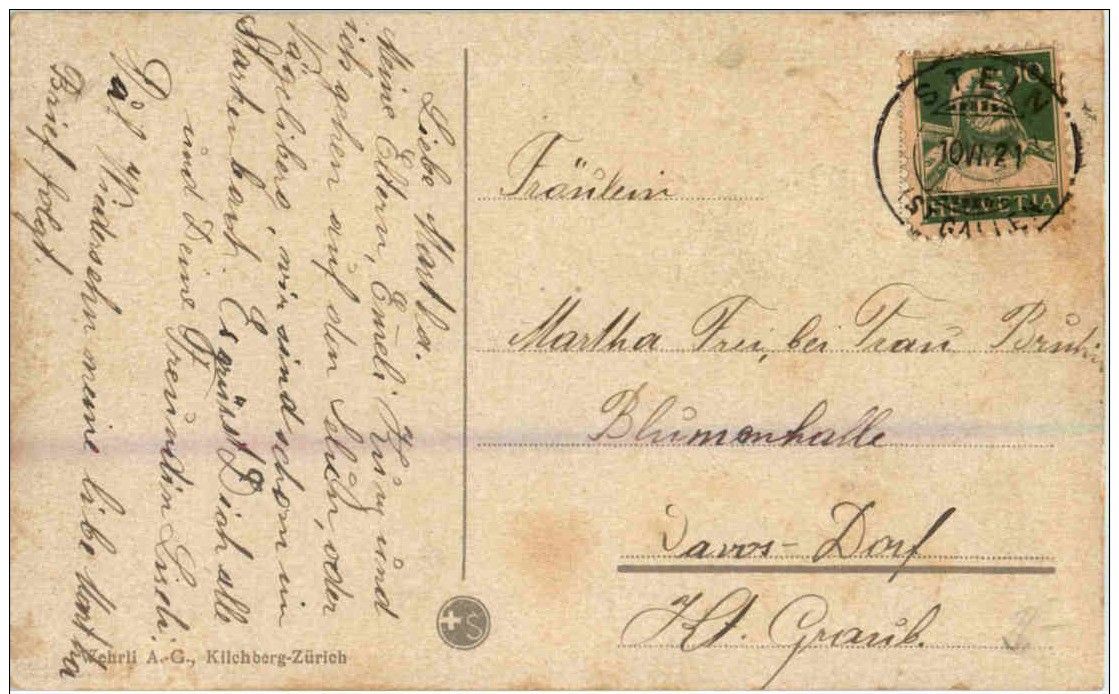 Liebe Martha.
Meine Eltern, Emeli Kuing und
ich gehen auf den oder
Nägeliberg, wir sind schon in
Starkenbach. Es grüsst Dich alle
und Deine Freundin Liseli.
Auf Wiedersehn meine libe Martha
Brief folgt.
Fräulein
Martha Frei, bei Frau
Blumenhalle
Davos-Dorf
Kt. Graub.
STEIN
10 VI. 21
(ST. GALLEN)
10
HELVETIA
S
Wehrli A.-G., Kilchberg-Zürich
3.-